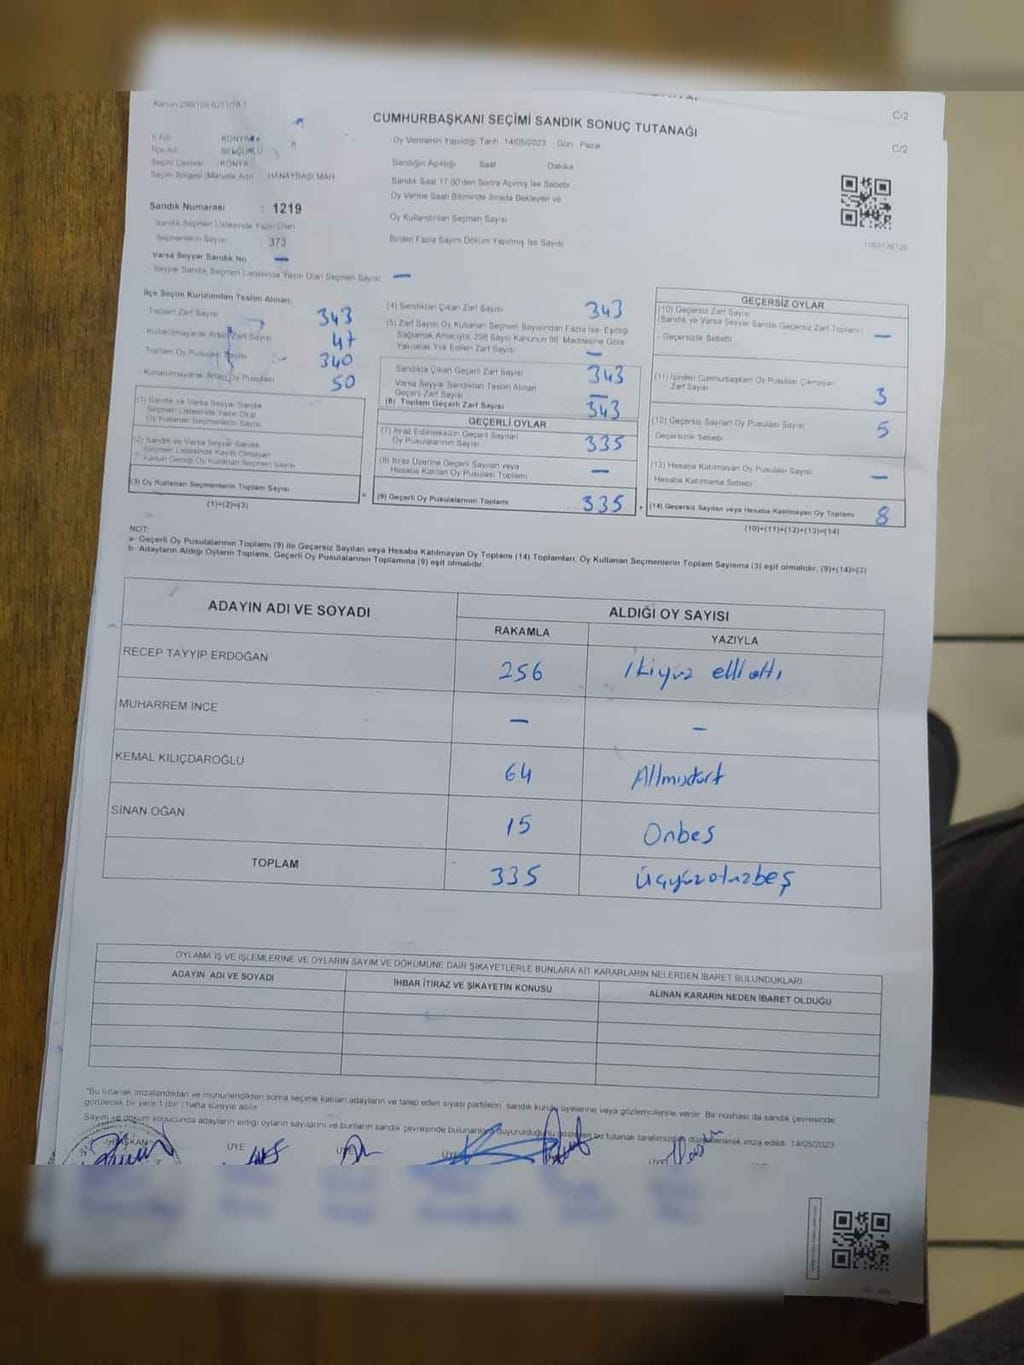 Kanun 298/105 6271/18-1
C/2
CUMHURBAŞKANI SEÇİMİ SANDIK SONUÇ TUTANAĞI
C/2
Oy Vermenin Yapıldığı Tarih 14/05/2023 Gün Pazar
İl Adı : KONYA
İlçe Adı : SELÇUKLU
Seçim Çevresi : KONYA
Seçim Bölgesi (Mahalle Adı) : HANAYBAŞI MAH
Sandığın Açıldığı Saat Dakika
Sandık Saat 17:00'den Sonra Açılmış İse Sebebi
Oy Verme Saati Bitiminde Sırada Bekleyen ve
Oy Kullandırılan Seçmen Sayısı
Birden Fazla Sayım Döküm Yapılmış İse Sayısı
Sandık Numarası : 1219
Sandık Seçmen Listesinde Yazılı Olan
Seçmenlerin Sayısı 373
Varsa Seyyar Sandık No —
Seyyar Sandık Seçmen Listesinde Yazılı Olan Seçmen Sayısı —
İlçe Seçim Kurulundan Teslim Alınan:
Toplam Zarf Sayısı 343
- Kullanılmayarak Artan Zarf Sayısı 47
Toplam Oy Pusulası Sayısı 340
- Kullanılmayarak Artan Oy Pusulası 50
(1) Sandık ve Varsa Seyyar Sandık
Seçmen Listesinde Yazılı Olup
Oy Kullanan Seçmenlerin Sayısı
(2) Sandık ve Varsa Seyyar Sandık
Seçmen Listesinde Kayıtlı Olmayan
Kanun Gereği Oy Kullanan Seçmen Sayısı
(3) Oy Kullanan Seçmenlerin Toplam Sayısı
(1)+(2)=(3)
(4) Sandıktan Çıkan Zarf Sayısı 343
(5) Zarf Sayısı Oy Kullanan Seçmen Sayısından Fazla İse, Eşitliği
Sağlamak Amacıyla, 298 Sayılı Kanunun 98. Maddesine Göre
Yakılarak Yok Edilen Zarf Sayısı —
Sandıkta Çıkan Geçerli Zarf Sayısı 343
Varsa Seyyar Sandıktan Teslim Alınan
Geçerli Zarf Sayısı —
(6) Toplam Geçerli Zarf Sayısı 343
GEÇERLİ OYLAR
(7) İtiraz Edilmeksizin Geçerli Sayılan
Oy Pusulalarının Sayısı 335
(8) İtiraz Üzerine Geçerli Sayılan veya
Hesaba Katılan Oy Pusulası Toplamı —
(9) Geçerli Oy Pusulalarının Toplamı 335
GEÇERSİZ OYLAR
(10) Geçersiz Zarf Sayısı
(Sandık ve Varsa Seyyar Sandık Geçersiz Zarf Toplamı) —
- Geçersizlik Sebebi
(11) İçinden Cumhurbaşkanı Oy Pusulası Çıkmayan
Zarf Sayısı 3
(12) Geçersiz Sayılan Oy Pusulası Sayısı 5
Geçersizlik Sebebi
(13) Hesaba Katılmayan Oy Pusulası Sayısı —
Hesaba Katılmama Sebebi
(14) Geçersiz Sayılan veya Hesaba Katılmayan Oy Toplamı 8
(10)+(11)+(12)+(13)=(14)
NOT:
a- Geçerli Oy Pusulalarının Toplamı (9) ile Geçersiz Sayılan veya Hesaba Katılmayan Oy Toplamı (14) Toplamları, Oy Kullanan Seçmenlerin Toplam Sayısına (3) eşit olmalıdır. (9)+(14)=(3)
b- Adayların Aldığı Oyların Toplamı, Geçerli Oy Pusulalarının Toplamına (9) eşit olmalıdır.
ADAYIN ADI VE SOYADI ALDIĞI OY SAYISI
RAKAMLA YAZIYLA
RECEP TAYYİP ERDOĞAN 256 İkiyüz elli altı
MUHARREM İNCE — —
KEMAL KILIÇDAROĞLU 64 Altmışdört
SİNAN OĞAN 15 Onbeş
TOPLAM 335 Üçyüzotuzbeş
OYLAMA İŞ VE İŞLEMLERİNE VE OYLARIN SAYIM VE DÖKÜMÜNE DAİR ŞİKAYETLERLE BUNLARA AİT KARARLARIN NELERDEN İBARET BULUNDUKLARI
ADAYIN ADI VE SOYADI İHBAR İTİRAZ VE ŞİKAYETİN KONUSU ALINAN KARARIN NEDEN İBARET OLDUĞU
"Bu tutanak imzalandıktan ve mühürlendikten sonra seçime katılan adayların ve talep eden siyasi partilerin sandık kurulu üyelerine veya gözlemcilerine verilir. Bir nüshası da sandık çevresinde
görülecek bir yere 1 (bir) hafta süreyle asılır.
Sayım ve döküm sonucunda adayların aldığı oyların sayılarını ve bunların sandık çevresinde bulunanlara duyurulduğunu gösteren bu tutanak tarafımızdan düzenlenerek imza edildi. 14/05/2023
BAŞKAN ÜYE ÜYE ÜYE ÜYE